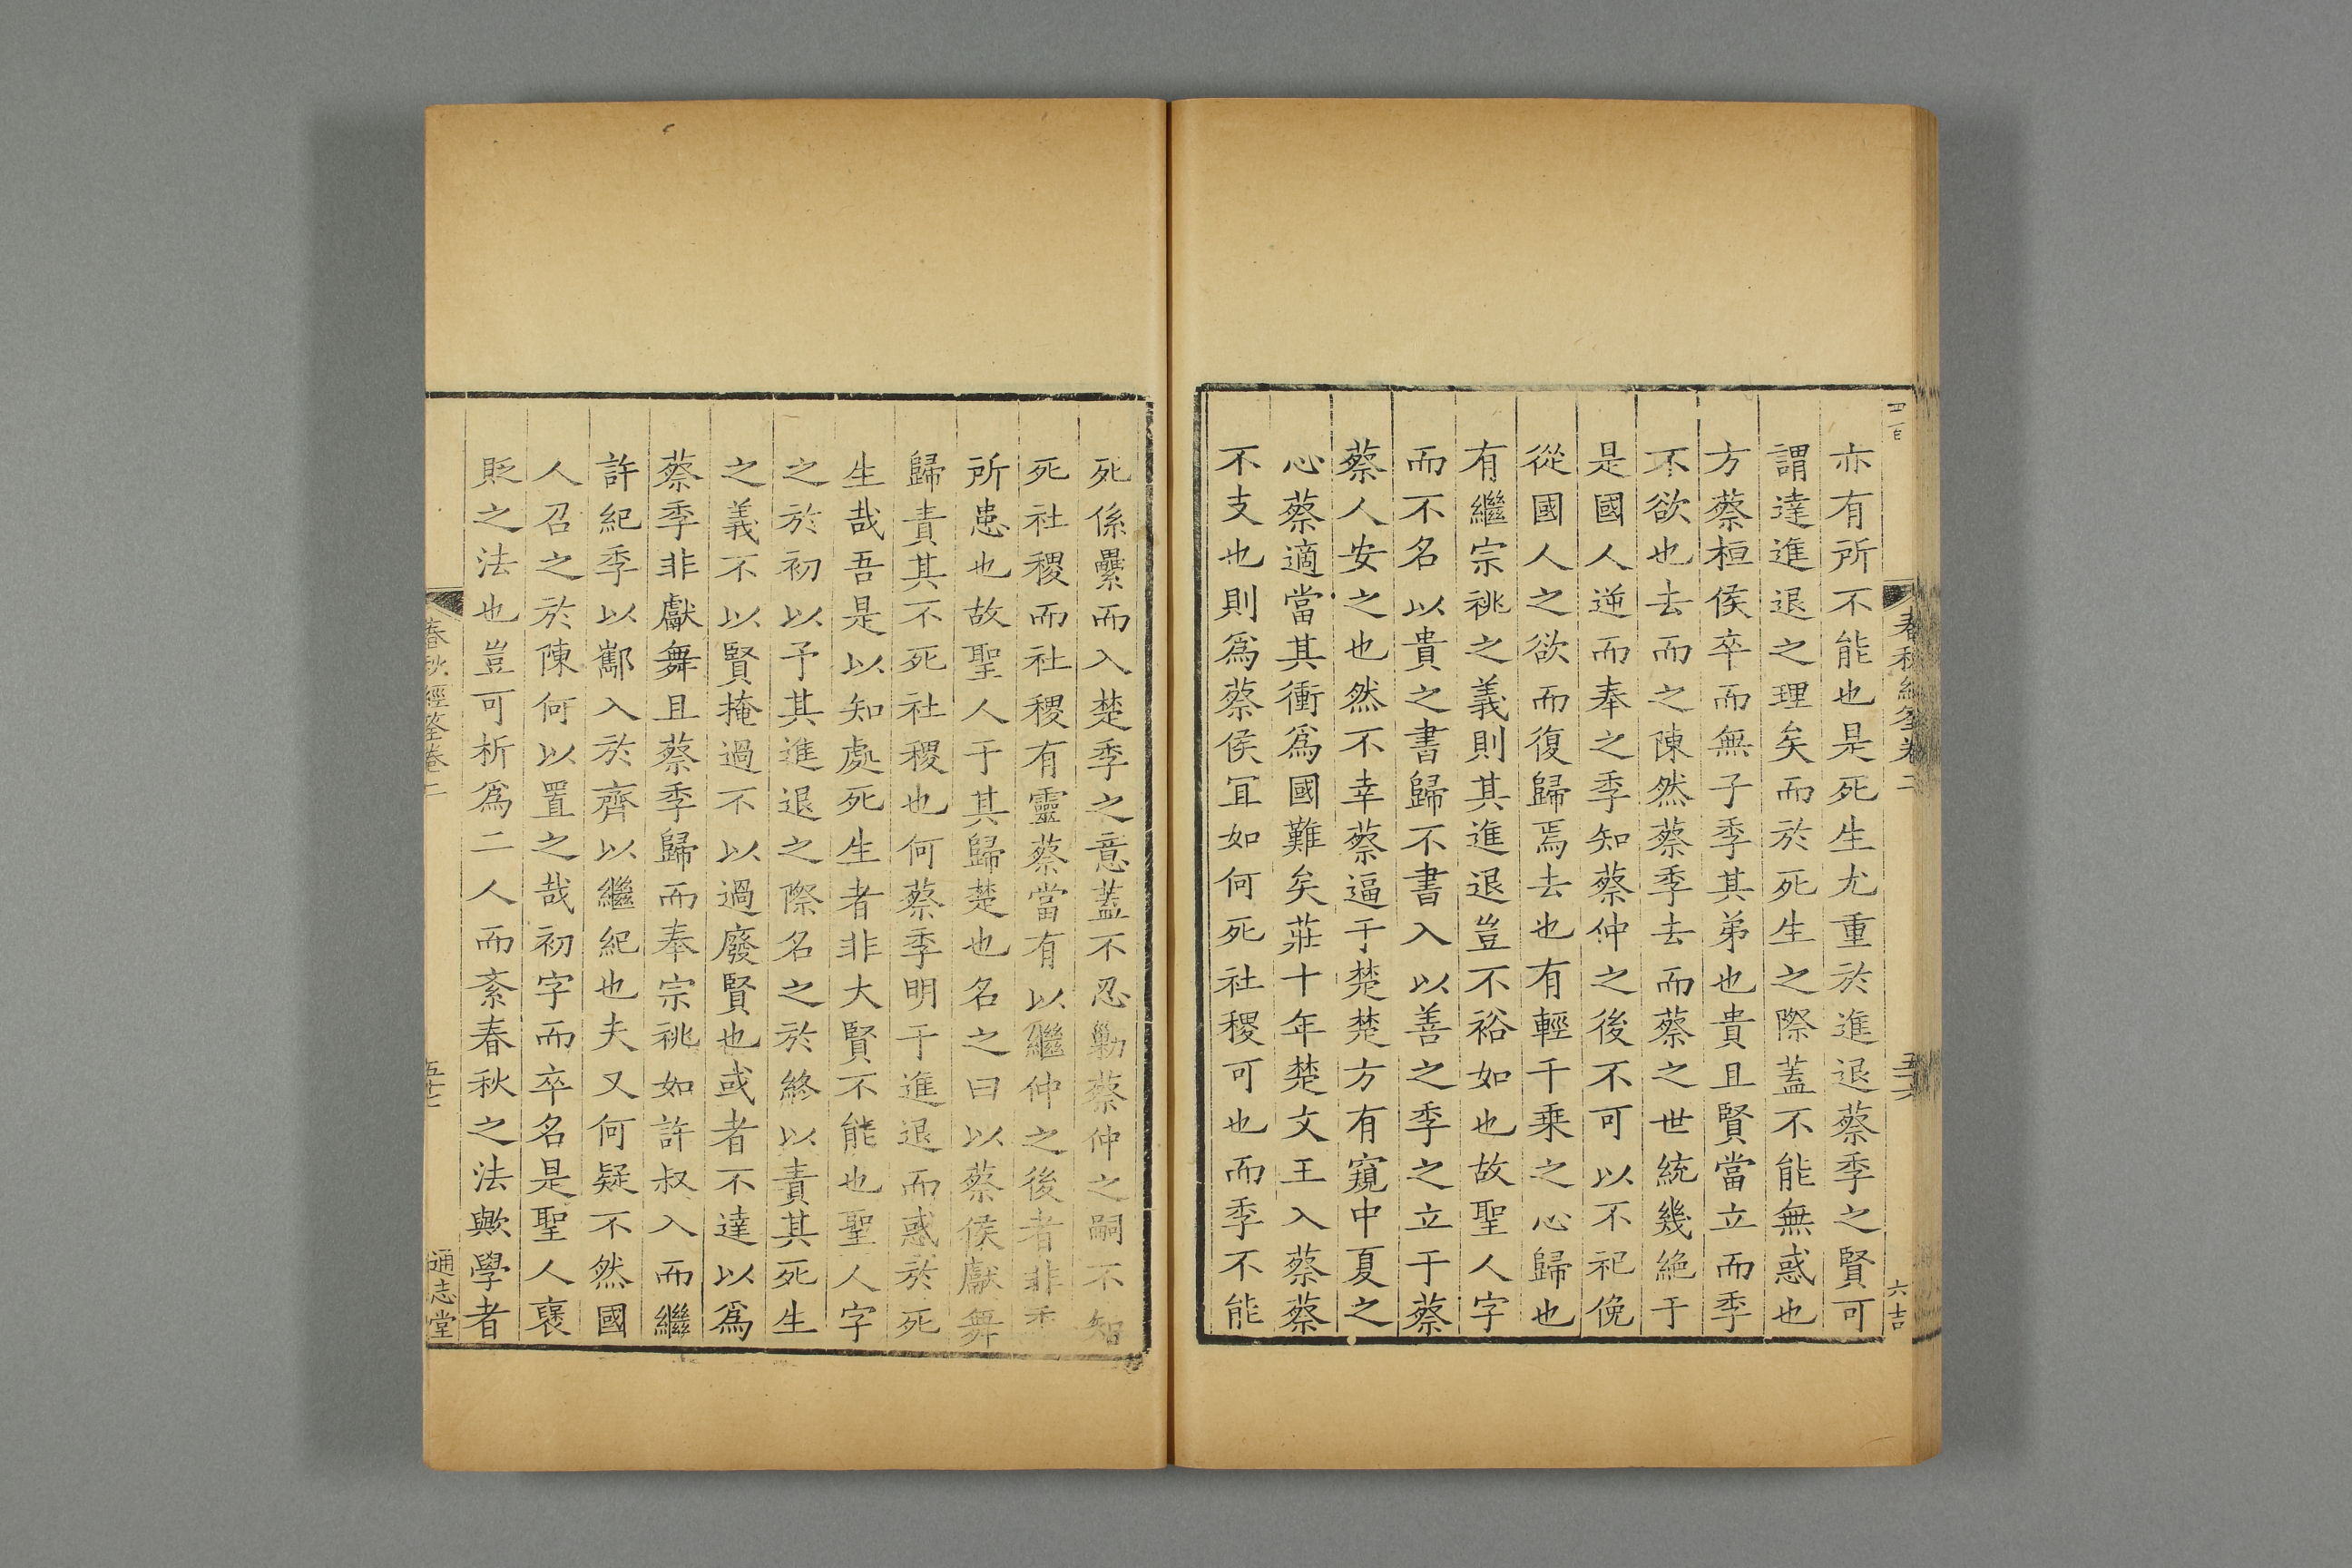 四百
亦有所不能也是死生尤重於進退蔡季之賢可
謂達進退之理矣而於死生之際蓋不能無惑也
方蔡桓侯卒而無子季其弟也貴且賢當立而季
不欲也去而之陳然蔡季去而蔡之世統幾絶于
是國人逆而奉之季知蔡仲之後不可以不祀俛
從國人之欲而復歸焉去也有輕千乗之心歸也
有繼宗祧之義則其進退豈不裕如也故聖人字
而不名以貴之書歸不書入以善之季之立于蔡
蔡人安之也然不幸蔡逼于楚楚方有窺中夏之
心蔡適當其衝爲國難矣莊十年楚文王入蔡蔡
不支也則爲蔡侯冝如何死社稷可也而季不能
春秋經筌卷二
六吉
死係纍而入楚季之意蓋不忍勦蔡仲之嗣不知
死社稷而社稷有靈蔡當有以繼仲之後者非季
所患也故聖人于其歸楚也名之曰以蔡侯獻舞
歸責其不死社稷也何蔡季明于進退而惑於死
生哉吾是以知處死生者非大賢不能也聖人字
之於初以予其進退之際名之於終以責其死生
之義不以賢掩過不以過廢賢也或者不達以爲
蔡季非獻舞且蔡季歸而奉宗祧如許叔入而繼
許紀季以酅入於齊以繼紀也夫又何疑不然國
人召之於陳何以置之哉初字而卒名是聖人襃
貶之法也豈可析爲二人而紊春秋之法歟學者
春秋經筌卷二
五十七
通志堂